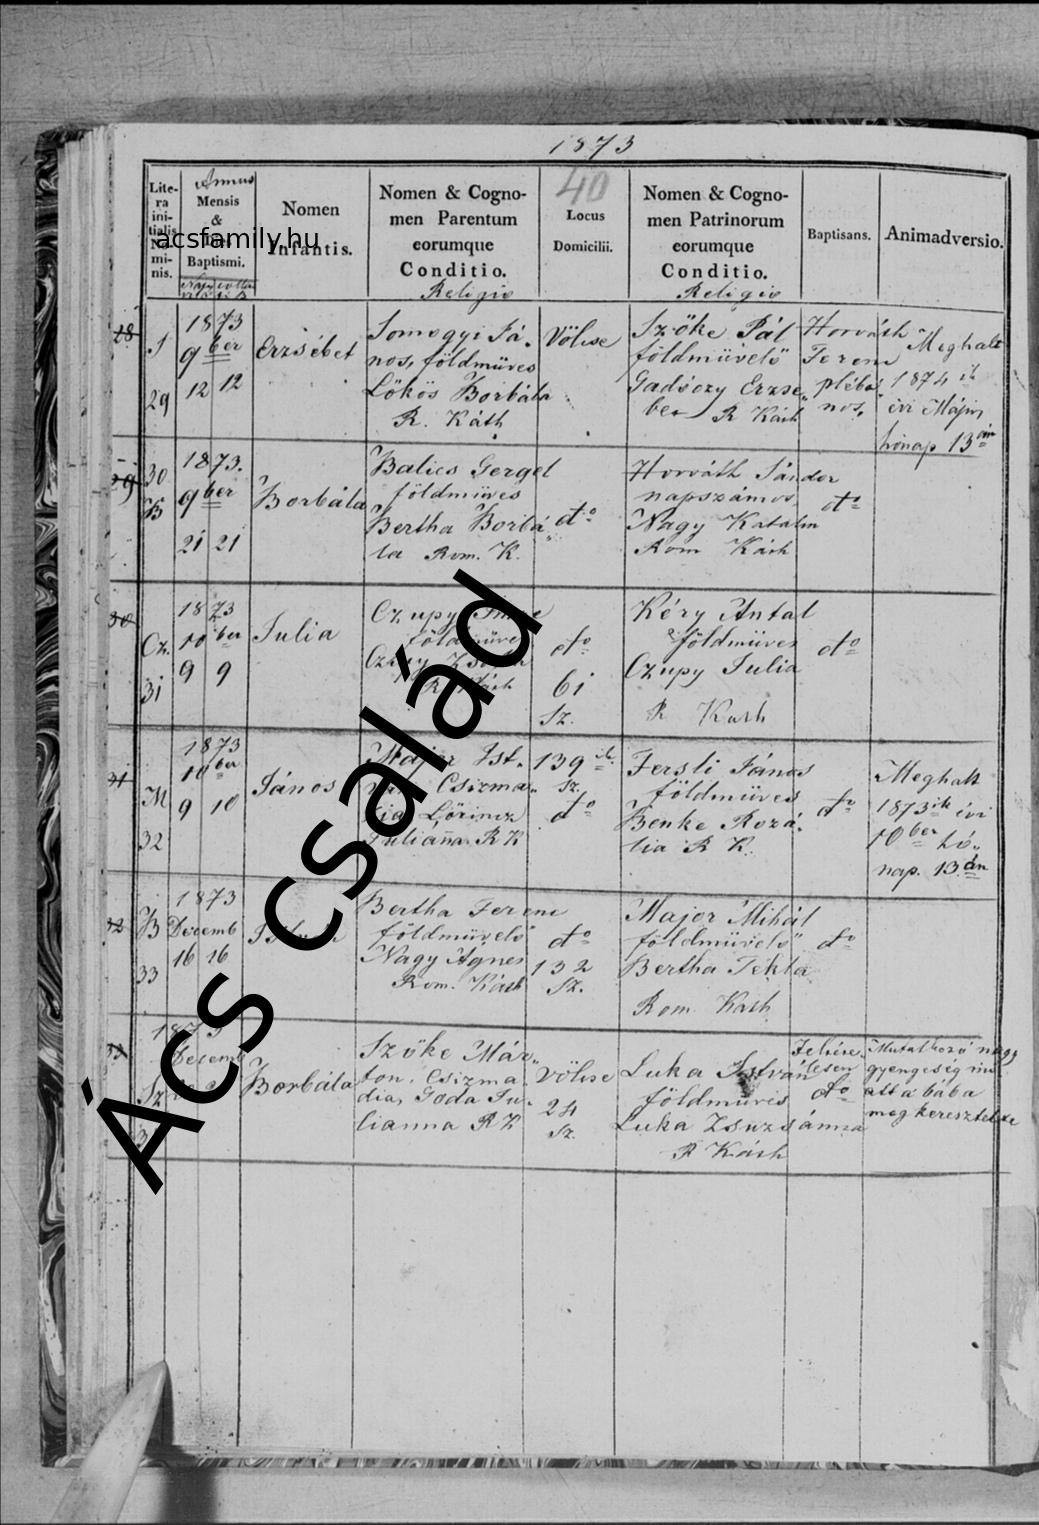 1873
40
Litera initialis Nominis.
Annus
Mensis
&
Baptismi.
Nomen
Infantis.
Nomen & Cogno-
men Parentum
eorumque
Conditio.
Religio
Locus
Domicilii.
Nomen & Cogno-
men Patrinorum
eorumque
Conditio.
Religio
Baptisans.
Animadversio.
acsfamily.hu
28
S
29
1873
9 ber
12 12
Erzsébet
Somogyi Já-
nos, földmüves
Lökös Borbála
R. Káth
Völcse
Szőke Pál
földmüvelő
Gadóczy Erzse-
bet R Káth
Horváth
Ferenc
plébá-
nos
Meghalt
1874 ik
évi Május
hónap 13 án
29
30
B
1873.
9 ber
21 21
Borbála
Balics Gergel
földmüves
Bertha Borbá-
la Rom. K.
dto
Horváth Sándor
napszámos
Nagy Katalin
Rom Káth
dto
30
Cz.
31
1873
10 ber
9 9
Julia
Czupy Imre
földmüves
Czupy
dto
61
sz.
Kéry Antal
földmüves
Czupy Julia
R Kath
dto
31
M
32
1873
10 ber
9 10
János
Major Ist-
Csizma-
dia Lőrincz
Julianna R K
139 ik
sz.
dto
Fersli János
földmüves
Benke Rozá-
lia R K.
dto
Meghalt
1873 ik évi
10 ber hó-
nap. 13 án
32
B
33
1873
Decemb
16 16
Bertha Ferenc
földmüvelő
Nagy Agnes
Rom. Káth
dto
132
sz.
Major Mihál
földmüvelő
Bertha Tekla
Rom Kath
dto
Sz
1873
Decemb
Borbála
Szőke Már-
ton. Csizma-
dia, Goda Ju-
lianna R K
Völcse
24
sz.
Luka István
földmüves
Luka Zsuzsánna
R Káth
dto
Mutatkozó nagy
gyengeség mi-
att a bába
meg keresztelte
Ács család